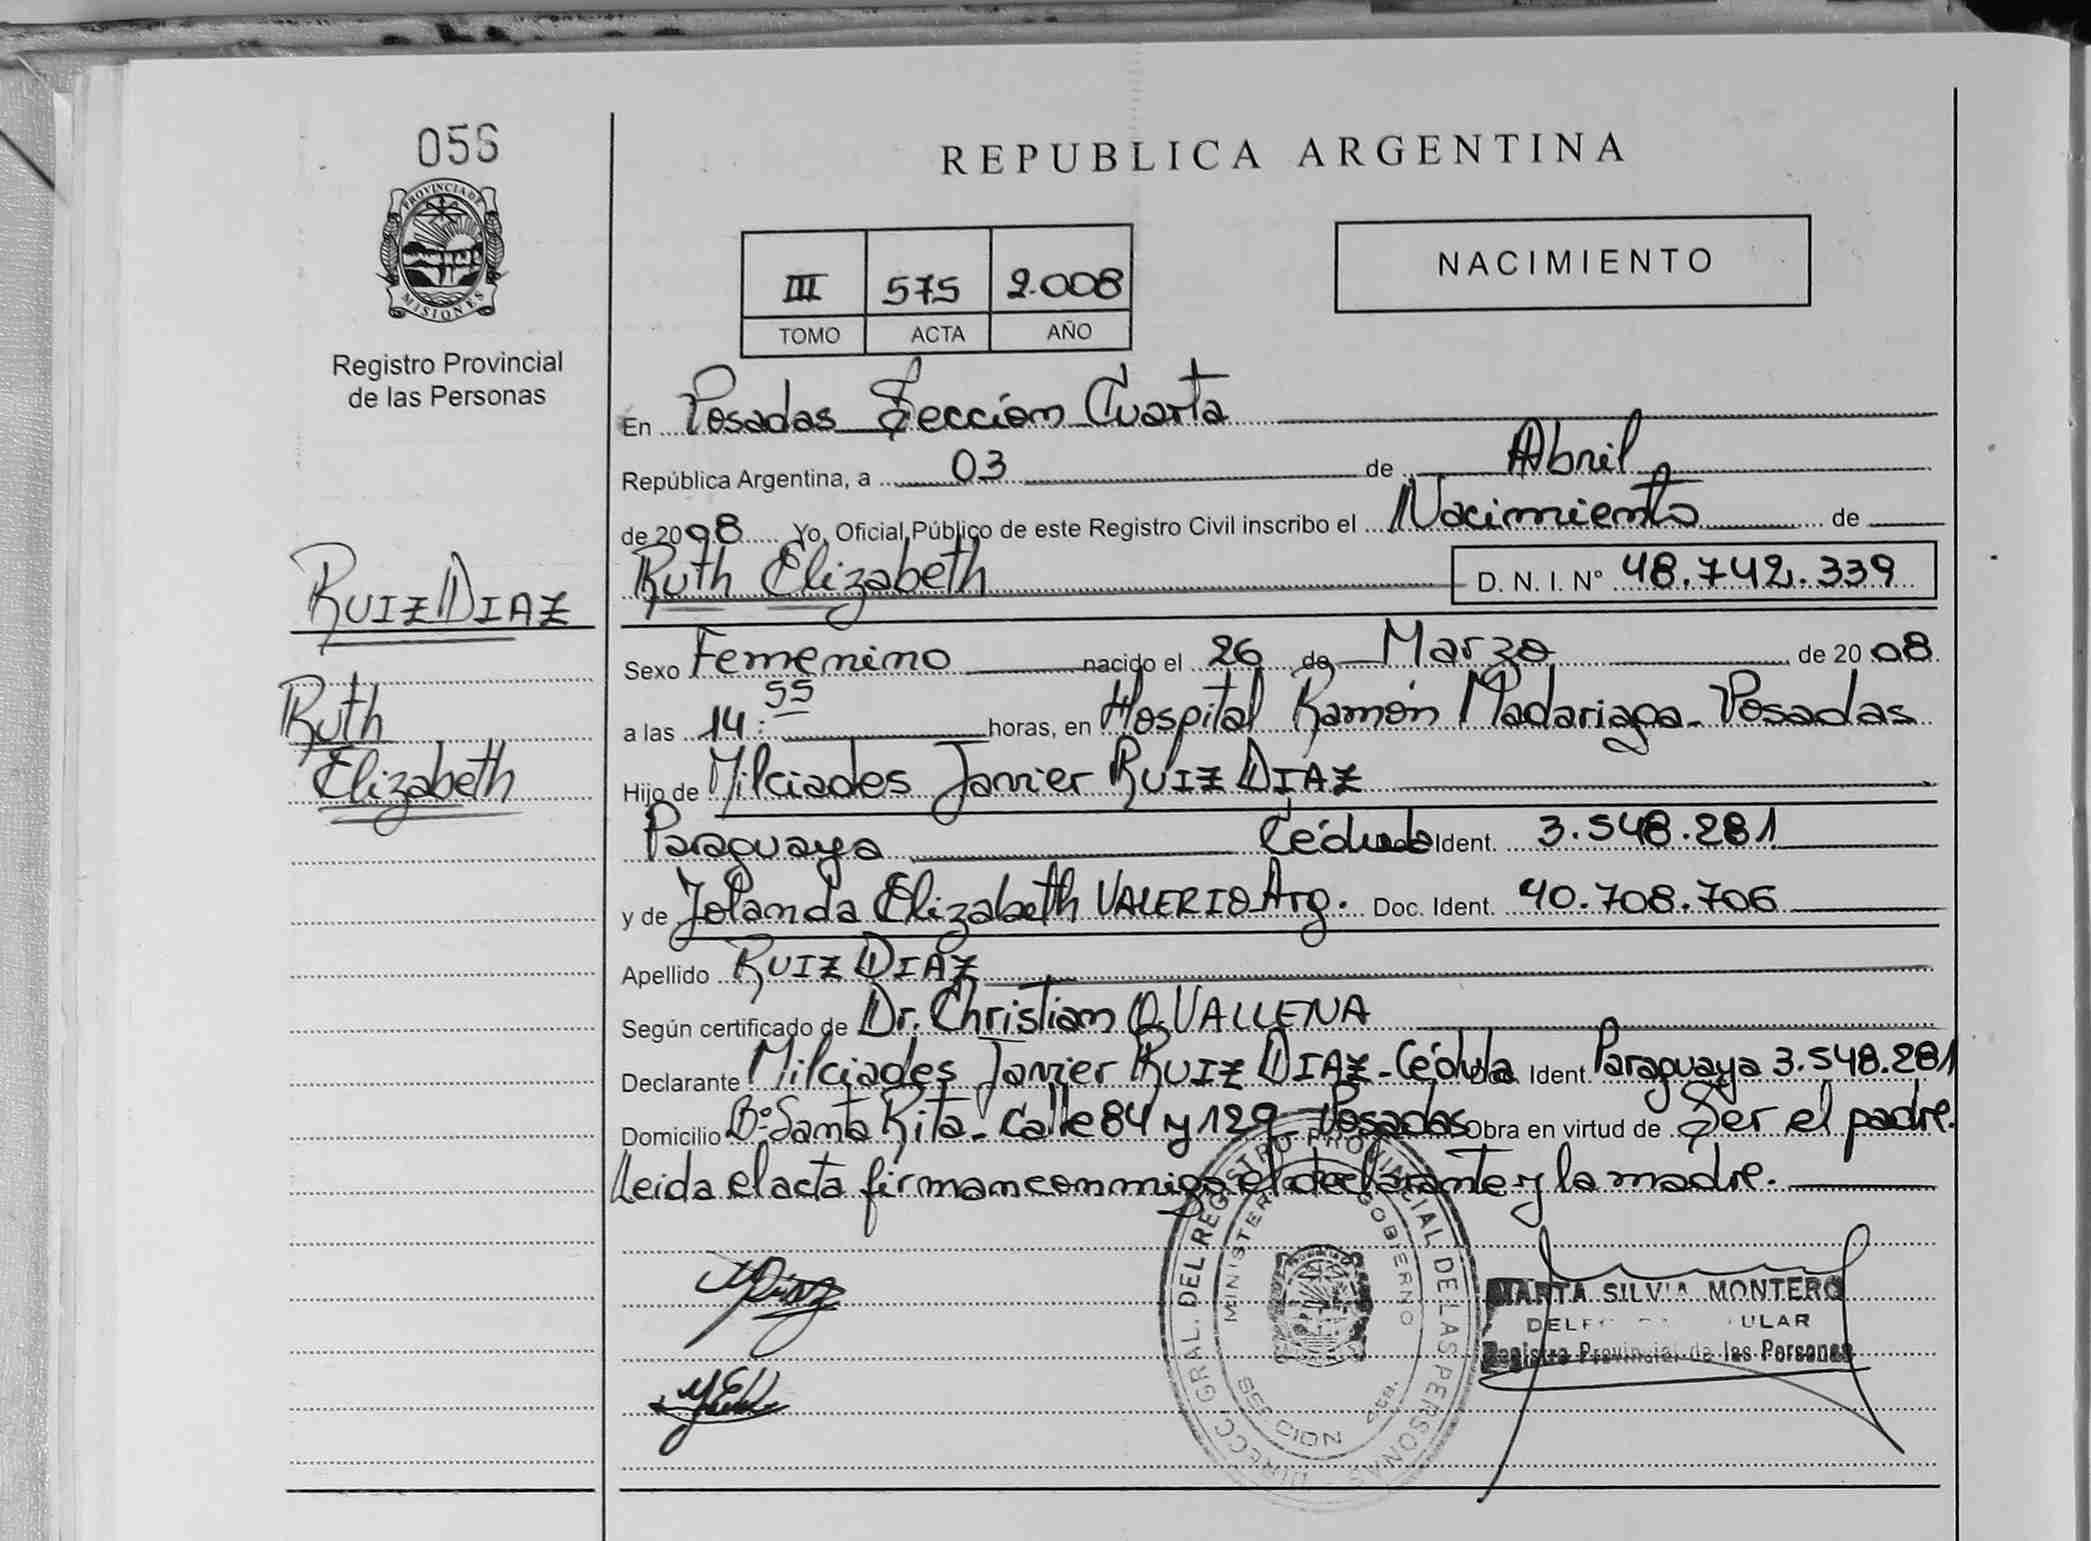 056
PROVINCIA DE MISIONES
Registro Provincial
de las Personas
RUIZ DIAZ
Ruth
Elizabeth
REPUBLICA ARGENTINA
III 575 2.008
TOMO ACTA AÑO
NACIMIENTO
En Posadas Sección Cuarta
República Argentina, a 03 de Abril
de 2008 Yo, Oficial Público de este Registro Civil inscribo el Nacimiento de
Ruth Elizabeth D. N. I. N° 48.742.339
Sexo Femenino nacido el 26 de Marzo de 2008
a las 14:55 horas, en Hospital Ramón Madariaga - Posadas
Hijo de Milciades Javier RUIZ DIAZ
Paraguaya Cédula Ident. 3.548.281
y de Yolanda Elizabeth VALERIO Arg. Doc. Ident. 40.708.706
Apellido RUIZ DIAZ
Según certificado de Dr. Christian O. VALLENA
Declarante Milciades Javier RUIZ DIAZ - Cédula Ident. Paraguaya 3.548.281
Domicilio B° Santa Rita - Calle 84 y 129 - Posadas Obra en virtud de Ser el padre.
Leida el acta firman conmigo el declarante y la madre.
DIRECC. GRAL. DEL REGISTRO PROVINCIAL DE LAS PERSONAS
GOBIERNO
MARTA SILVIA MONTERO
Registro Provincial de las Personas